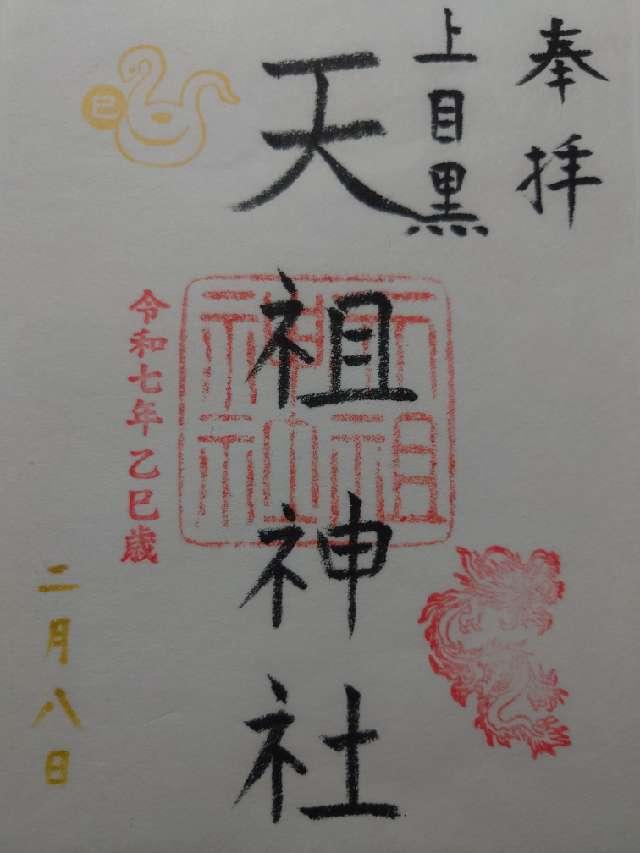 奉拝
上目黒
天祖神社
天祖神社
巳
令和七年乙巳歳
二月八日